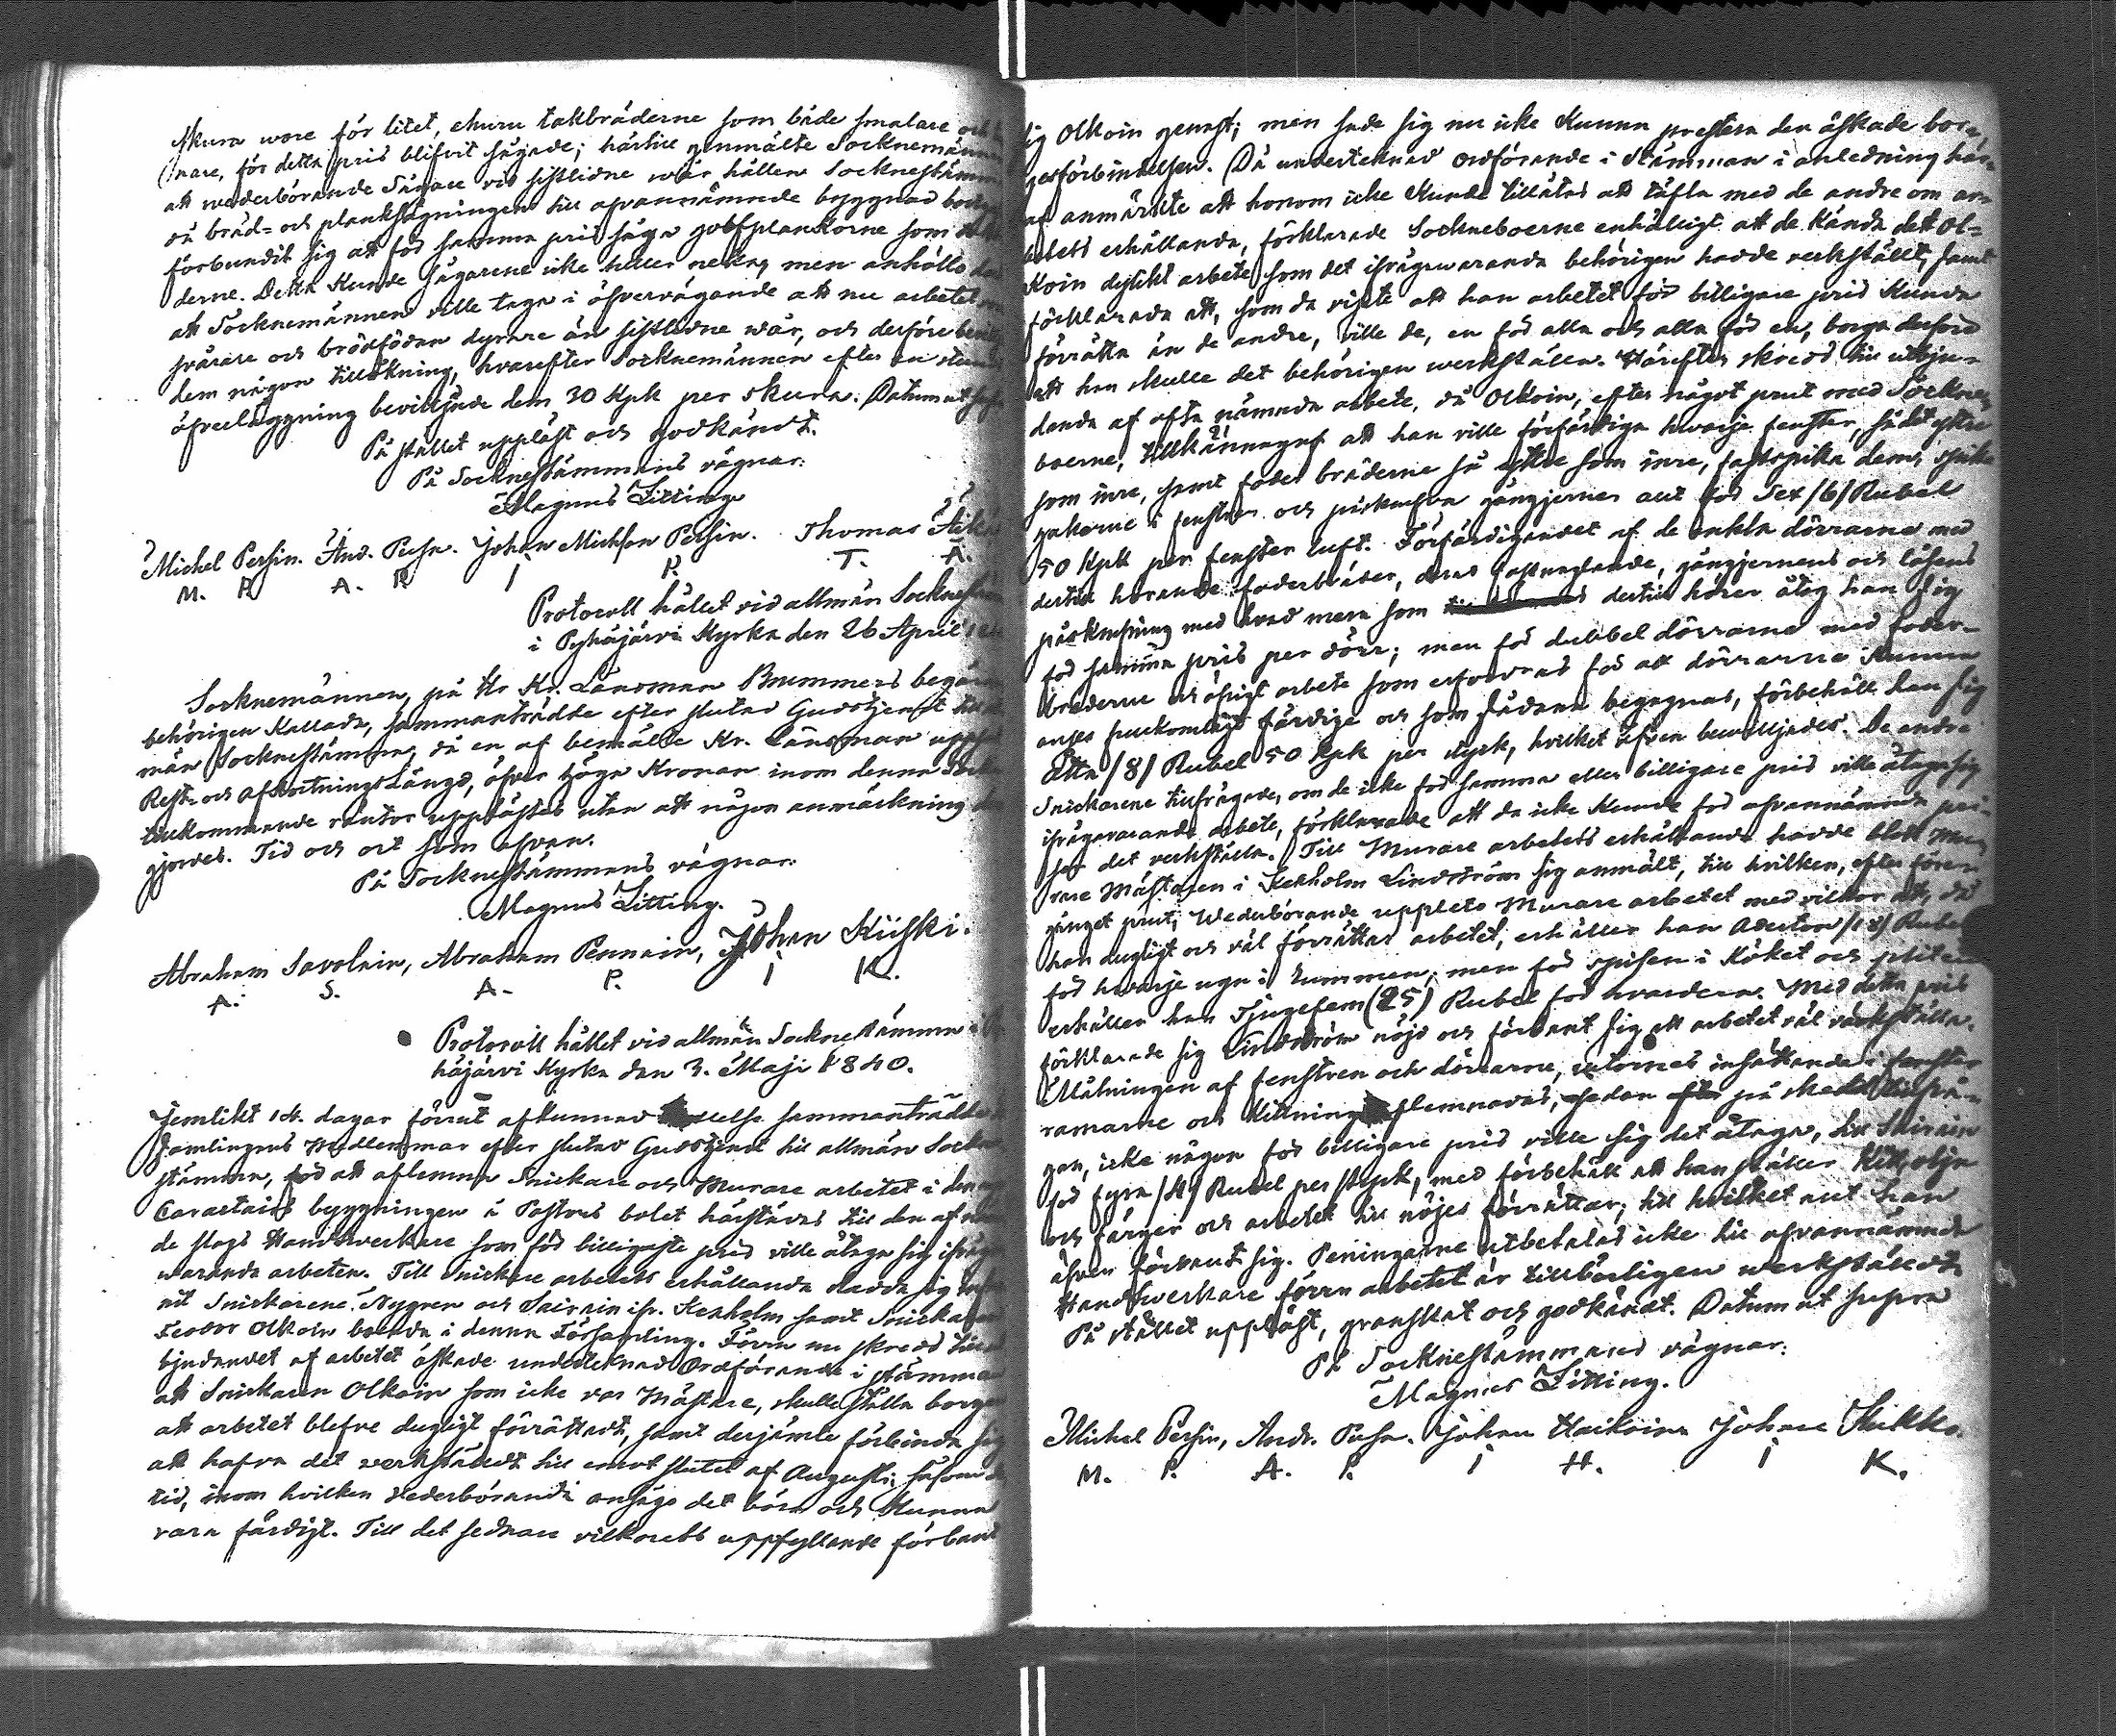 skura wore för litet, ehuru takbräderne som både smalare och
nare, för detta pris blifvit sågade; härtill genmälte Socknemännen
att wederbörande Sågare vid sistlidne wår hållen Sockнestämma
då bräd- och planksågningen till ofvannämnde byggnad
förbundit sig att för samma pris såga golfplankorne som
derne. Detta kunde Sågarene icke heller neka, men anhöllo
att Socknemännen ville taga i öfvervägande att nu arbetet
svårare och brödfödan dyrare än sistledne wår, och derföre
dem någon tillökning, hvarefter Socknemännen efter en stunds
öfverläggning beviljade dem 30 Kpk per skura. Datum ut supra
På stället uppläst och godkändt.
På Socknestämmans vägnar:
Magnus Litting
Michel Persin. And. Pusa. Johan Michson Persin. Thomas
M. P. A. P. I P. T. Ä.
Protocoll hållet vid allmän Socknestämma
i Pyhäjärvi Kyrka den 26 April
Socknemännen, på Hr Kr. Länsman Brummers begäran
behörigen kallade, sammanträdde efter slutad Gudstjenst till
män Socknestämma, då en af bemälte Kr. Länsman
Rest- och Afkortnings Längd, öfver Höga Kronan inom denna
tillkommande räntor upplästes utan att någon anmärkning
gjordes. Tid och ort som ofvan.
På Socknestämmans vägnar:
Magnus Litting.
Abraham Savolain, Abraham Pennain, Johan Kiiski.
A. S. A. P. I K.
Protocoll hållet vid allmän Socknestämma i
häjärvi Kyrka den 3. Maji 1840.
Jemlikt 14. dagar förut afkunnad sammanträdde
samlingens Medlemmar efter slutad Gudstjenst till allmän Sockne
stämma, för att aflemna Snickare och Murare arbetet i den
Caractairs byggningen å Pastors bolet härstädes till den af
de slags Handtverkare som för billigaste pris ville åtaga sig ifråga
warande arbeten. Till Snickare arbetets erhållande hade sig
nit Snickarene Nygren och Sairain ifr. Kexholm samt Snickaren
Feodor Olkoin boende i denna Församling. Förrn nu skredd till
bjudandet af arbetet äskade undertecknad Ordförande i stämman
att Snickaren Olkoin som icke var Mästare, skulle ställa borgen
att arbetet blefve dugligt förrättadt, samt derjämte förbinda sig
att hafva det verkstäldt till emot slutet af Augusti; såsom
tid, inom hvilken Vederbörande ansågo det böra och kunna
vara färdigt. Till det sednare vilkorets uppfyllande förband
sig Olkoin genast; men sade sig nu icke kunna prestera den äskade bor-
gesförbindelsen. Då undertecknad Ordförande i Stämman i anledning här-
af anmärkte att honom icke kunde tillåtas att täfla med de andre om ar-
betets erhållande, förklarade Sockneboerne enhälligt att de kända det Ol-
koin dylikt arbete, som det ifrågawarande behörigen hade verkställt, samt
förklarade att, som de visste att han arbetet för billigare pris kunde
förrätta än de andre, ville de, en för alla och alla för en, borga derföre
att han skulle det behörigen werkställa. Härefter skredd till utbju-
dande af ofta nämnde arbete, då Olkoin, efter något prut med Sockne-
boerne, tillkännagaf att han ville förfärdiga hvarje fenster, såväl yttre
som inre, samt foder bräderne så yttre som inre, fastspika dem, spika
hakarne i fenstren och påskrufva gångjernen allt för Sex /6/ Rubel
50 Kpk per fenster luft. Förfärdigandet af de enkla dörrarne med
dertill hörande foderbräder, deras fastnaglande, gångjernens och låsens
påskrufning med hvad mera som dertill hörer åtog han sig
för samma pris per dörr; men för dubbel dörrarne med foder-
bräderne och öfrigt arbete som erfordras för att dörrarne kunna
anses fullkomligt färdige och som sådane begagnas, förbehöll han sig
Åtta /8/ Rubel 50 Kpk per styck, hvilket äfven bewilljades. De andre
Snickarene tillfrågade, om de icke för samma eller billigare pris ville åtaga sig
ifrågavarande arbete, förklarade att de icke kunde för ofvannämnde pri-
ser det verkställa. Till Murare arbetets erhållande hade blott Mu-
rare Mästaren i Kexholm Lindström sig anmält, till hvilken, efter före-
gånget prut, Wederbörande uppläto Murare arbetet med vilkor att, då
han dugligt och väl förrättar arbetet, erhåller han Aderton /18/ Rubel
för hvarje ugn i rummen; men för spisen i Köket och
erhåller han Tjugefem (25) Rubel för hvardera. Med detta pris
förklarade sig Lindström nöjd och förband sig att arbetet väl värkställa.
Målningen af fenstren och dörrarne, rutornes insättande i fenster
ramarne och kittning aflemnades, sedan på skedd tillfrå-
gan, icke någon för billigare pris ville sig det åtaga, till Sairain
för fyra /4/ Rubel per styck, med förbehåll att han ställer Kitt, olja
och färger och arbetet till nöjes förrättar; till hvilket allt han
äfven förband sig. Peningarne utbetalas icke till ofvannämnde
Handtwerkare förrn arbetet är tillbörligen werkstäldt.
På stället uppläst, granskat och godkändt. Datum ut supra
På Socknestämmans vägnar:
Magnus Litting.
Michel Persin, Andr. Pusa. Johan Haikoinen Johan Kukko.
M. P. A. P. I H. I K.